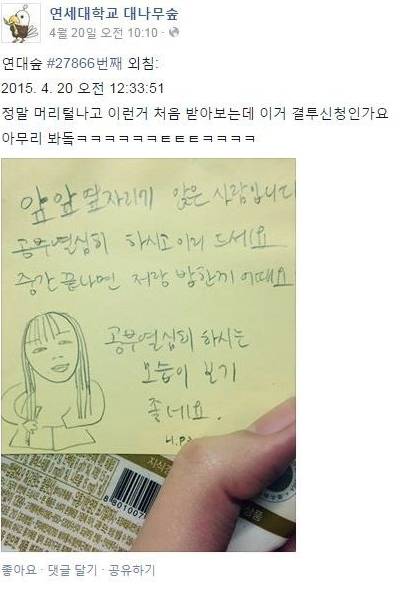 연세대학교 대나무숲
4월 20일 오전 10:10 ·
연대숲 #27866번째 외침:
2015. 4. 20 오전 12:33:51
정말 머리털나고 이런거 처음 받아보는데 이거 결투신청인가요
아무리 봐돜ㅋㅋㅋㅋㅋㅋㅌㅌㅌㅋㅋㅋㅋ
앞앞옆자리에 앉은 사람입니다
공부열심히 하시고 이거 드세요
중간 끝나면 저랑 밥한끼 어때요
공부열심히 하시는
모습이 보기
좋네요.
지식경
8 801007
상품
좋아요 · 댓글 달기 · 공유하기